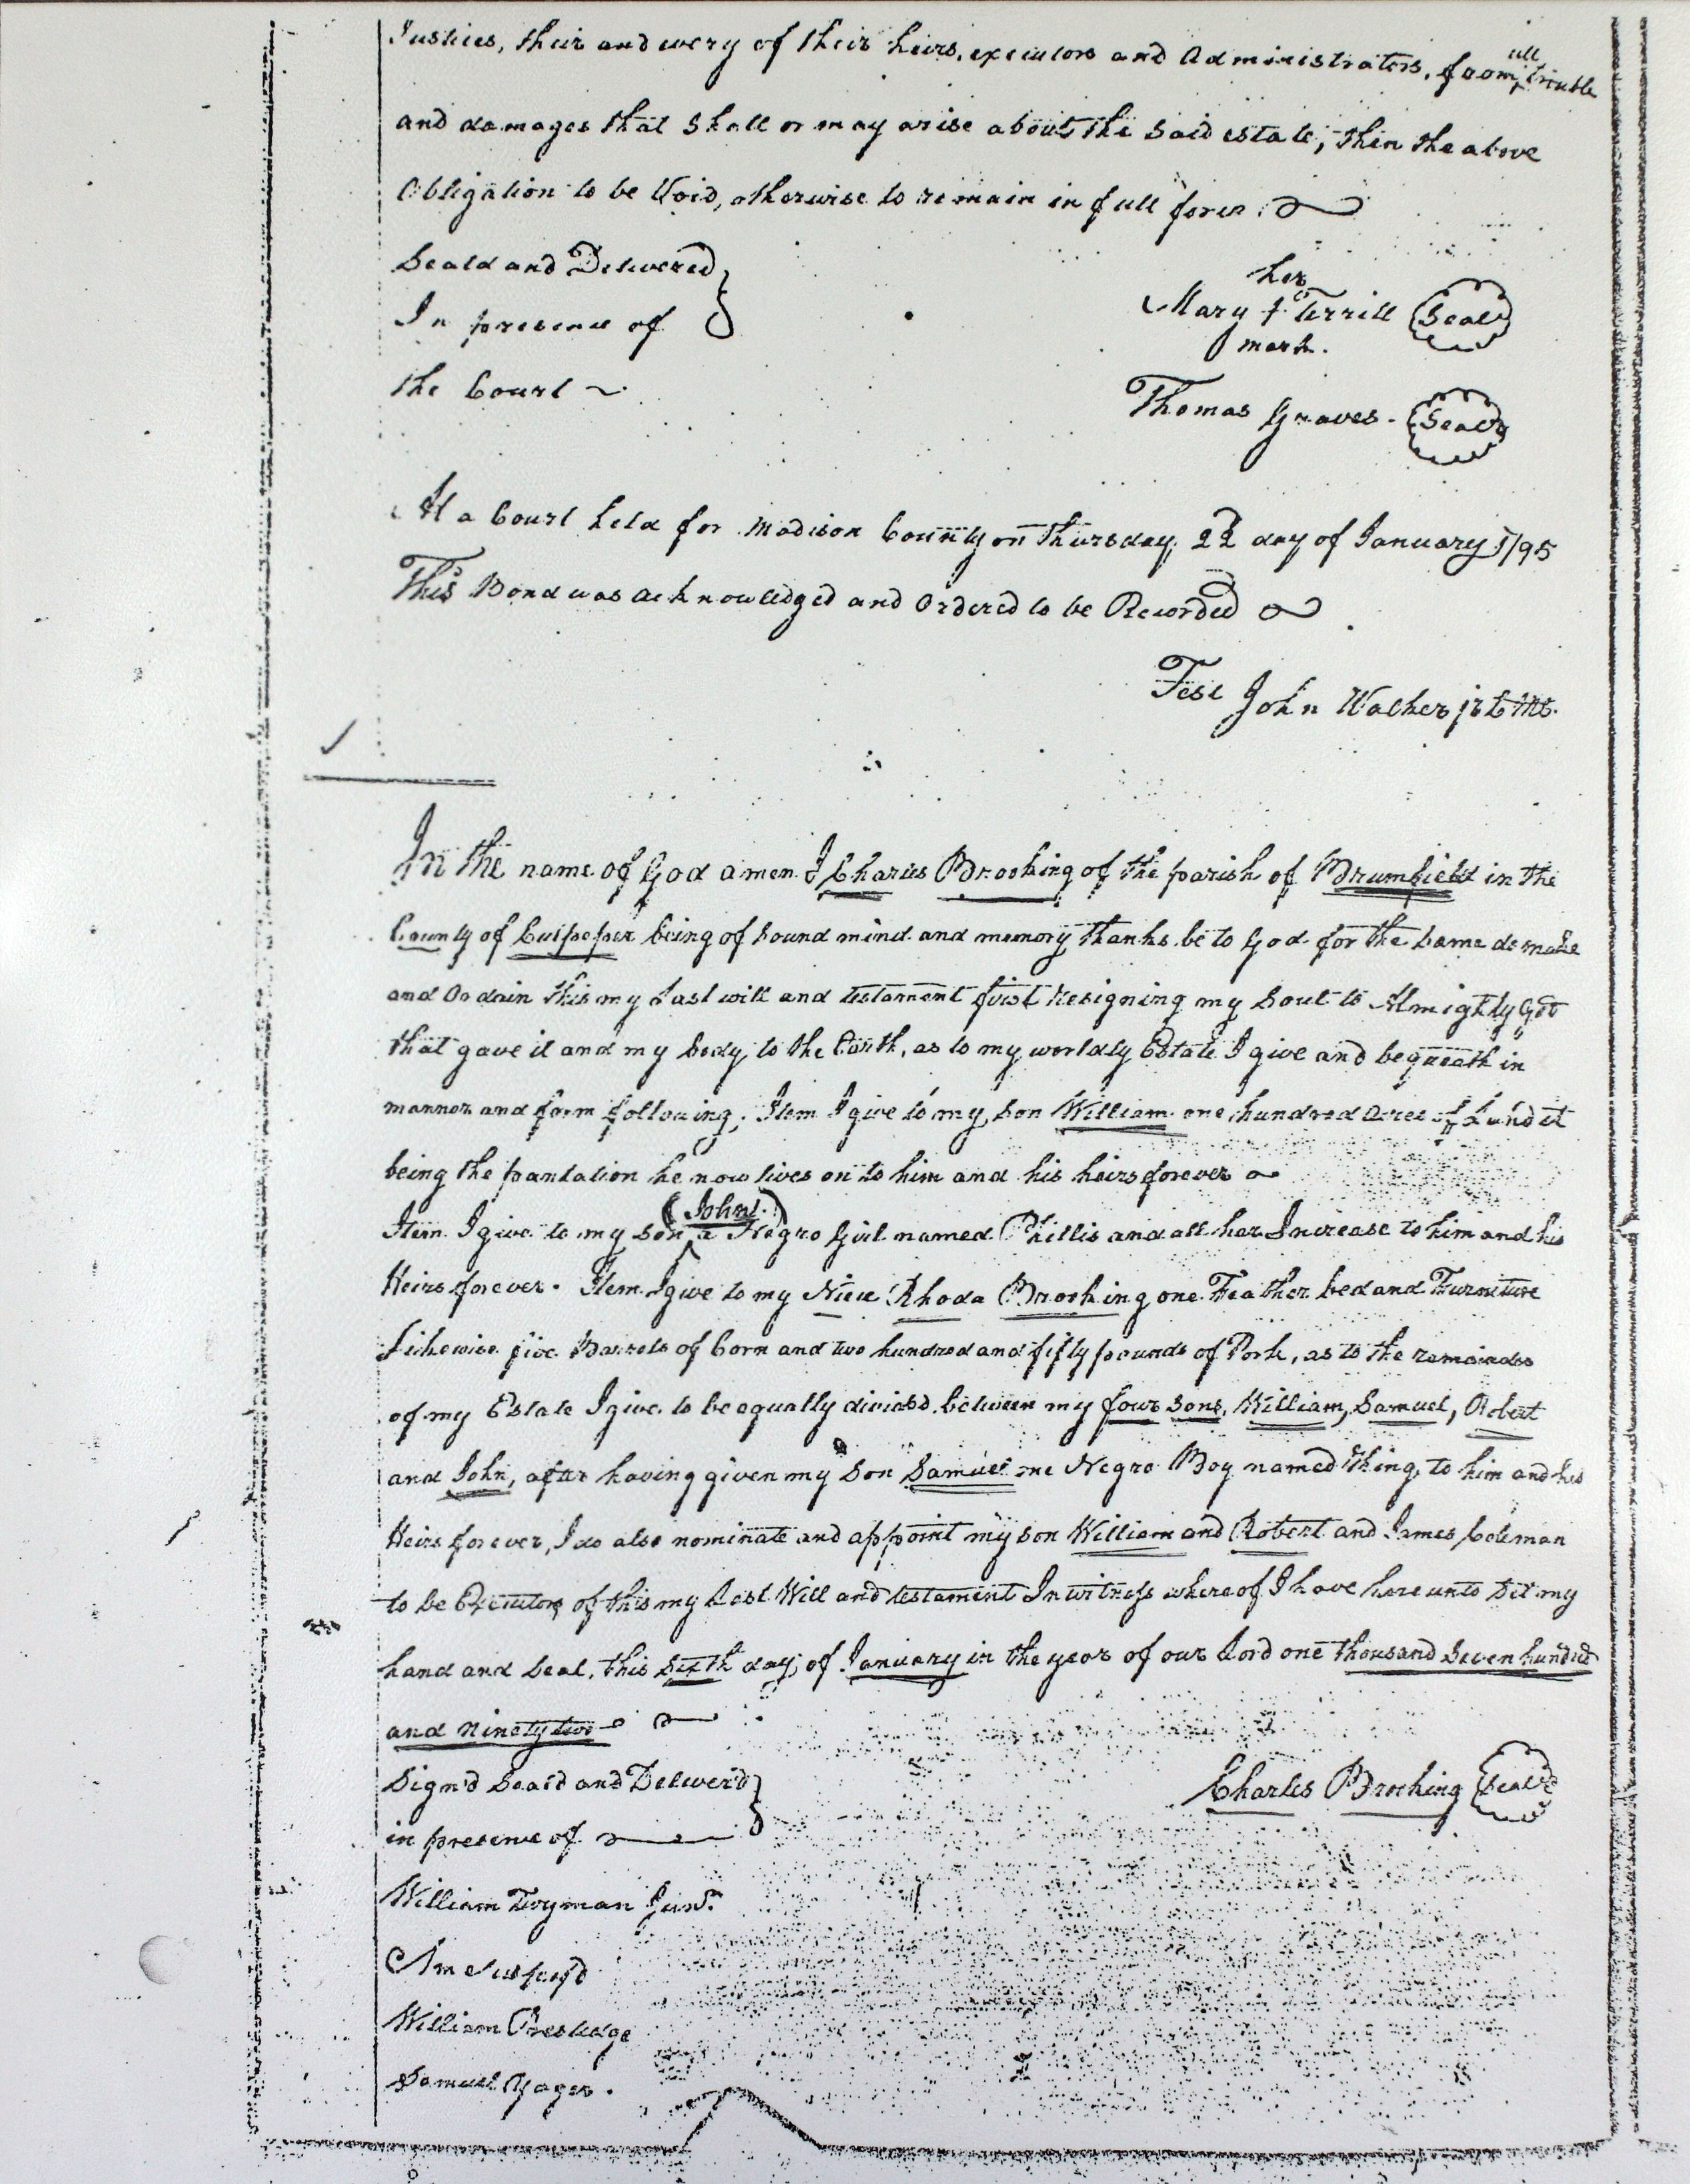 Justices, their and every of their heirs, executors and Administrators, from all trouble
and damages that shall or may arise about the said estate, then the above
Obligation to be Void, otherwise to remain in full force.
Seald and Delivered
In presence of
the Court
her
Mary Terrill Seal
mark.
Thomas Graves - Seal
At a Court held for Madison County on Thursday 22d day of January 1795
This Bond was acknowledged and Ordered to be Recorded
Test John Walker jr
In the name of God amen I Charles Brooking of the parish of Brumfield in the
County of Culpeper being of sound mind and memory thanks be to God for the same do make
and Ordain this my Last will and testament first Resigning my Soul to Almighty God
that gave it and my body to the Earth, as to my worldly Estate I give and bequeath in
manner and form following. Item I give to my son William one hundred acres of Land it
being the pantation he now lives on to him and his heirs forever
Item I give to my son (John) a Negro Girl named Phillis and all her Increase to him and his
Heirs forever. Item I give to my Niece Rhoda Brooking one Feather bed and Furniture
Likewise five Barrels of Corn and two hundred and fifty pounds of Pork, as to the remainder
of my Estate I give to be equally divided between my four sons, William, Samuel, Robert
and John, after having given my son Samuel one Negro Boy named to him and his
Heirs forever, I do also nominate and appoint my son William and Robert and James Coleman
to be Executors of this my Last Will and testament In witness whereof I have hereunto set my
hand and seal, this sixth day of January in the year of our Lord one thousand seven hundred
and ninety two
Sign'd Seal'd and Deliver'd
in presence of
Charles Brooking Seal
William Twyman Junr.
William Presledge
Samuel Yager.